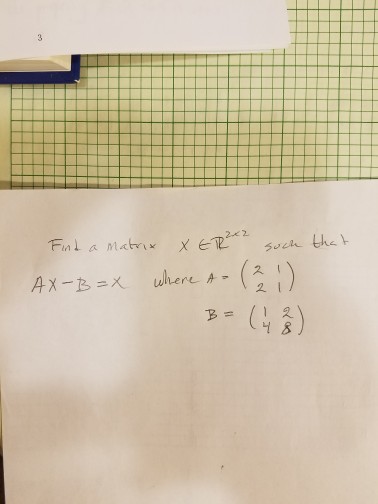 3
Find a matrix X ∈ ℝ^{2×2} such that
AX - B = X where A = (2 1
2 1)
B = (1 2
4 8)